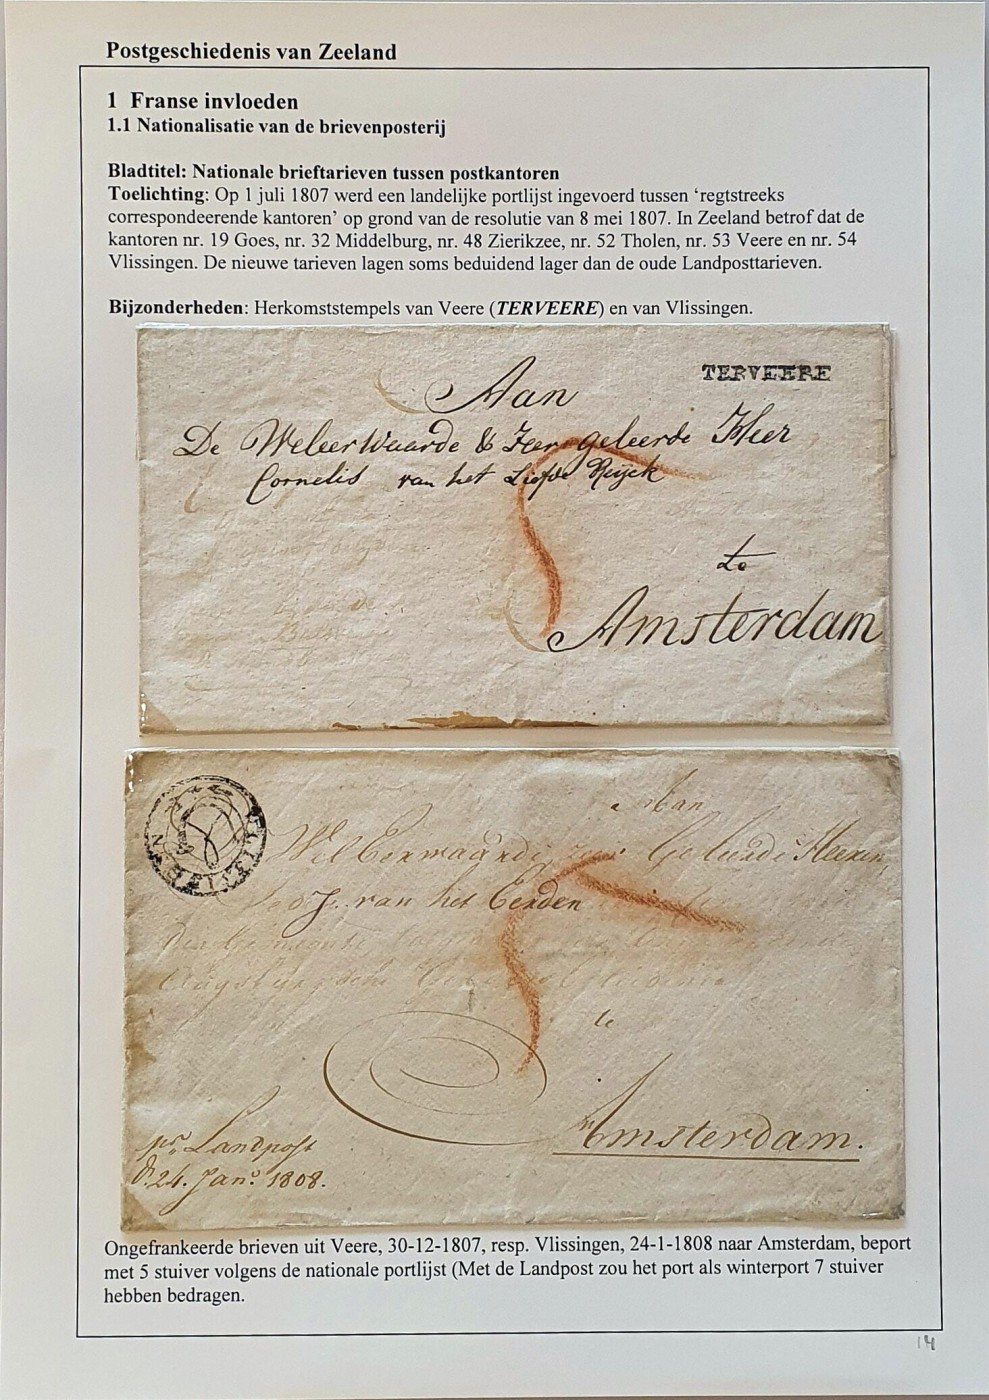 Postgeschiedenis van Zeeland
1 Franse invloeden
1.1 Nationalisatie van de brievenposterij
Bladtitel: Nationale brieftarieven tussen postkantoren
Toelichting: Op 1 juli 1807 werd een landelijke portlijst ingevoerd tussen ‘regtstreeks
correspondeerende kantoren’ op grond van de resolutie van 8 mei 1807. In Zeeland betrof dat de
kantoren nr. 19 Goes, nr. 32 Middelburg, nr. 48 Zierikzee, nr. 52 Tholen, nr. 53 Veere en nr. 54
Vlissingen. De nieuwe tarieven lagen soms beduidend lager dan de oude Landposttarieven.
Bijzonderheden: Herkomststempels van Veere (TERVEERE) en van Vlissingen.
TERVEERE
Aan
De Weleerwaarde & Zeer geleerde Heer
Cornelis van het Liefde Reijck
te
Amsterdam
Aan
Geleerde Heeren
J. van het Eerden
te
Amsterdam.
pr. Landpost
24. Jano. 1808.
Ongefrankeerde brieven uit Veere, 30-12-1807, resp. Vlissingen, 24-1-1808 naar Amsterdam, beport
met 5 stuiver volgens de nationale portlijst (Met de Landpost zou het port als winterport 7 stuiver
hebben bedragen.
14